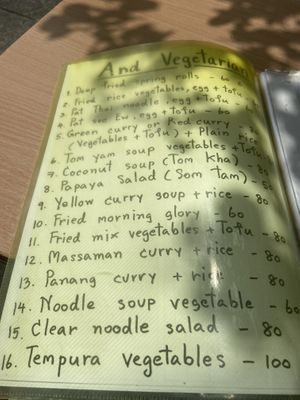 And Vegetarian
1. Deep fried spring rolls - 60
2. Fried rice vegetables, egg + tofu
3. Pat Thai noodle, egg + Tofu
4. Pat see Ew, egg + Tofu - 60
5. Green curry or Red curry
(Vegetables + Tofu) + Plain rice
6. Tom yam soup vegetables + Tofu
7. Coconut soup (Tom kha) - 80
8. Papaya Salad (Som tam) -
9. Yellow curry soup + rice - 80
10. Fried morning glory - 60
11. Fried mix vegetables + Tofu - 80
12. Massaman curry + rice - 80
13. Panang curry + rice - 80
14. Noodle soup vegetable - 60
15. Clear noodle salad - 80
16. Tempura vegetables - 100